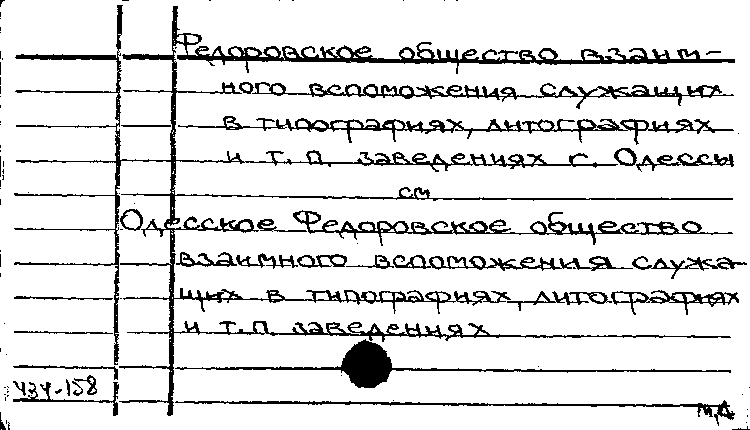 Федоровское общество взаим-
ного вспоможения служащих
в типографиях, литографиях
и т. п. заведениях г. Одессы
см.
Одесское Федоровское общество
взаимного вспоможения служа-
щих в типографиях, литографиях
и т.п. заведениях